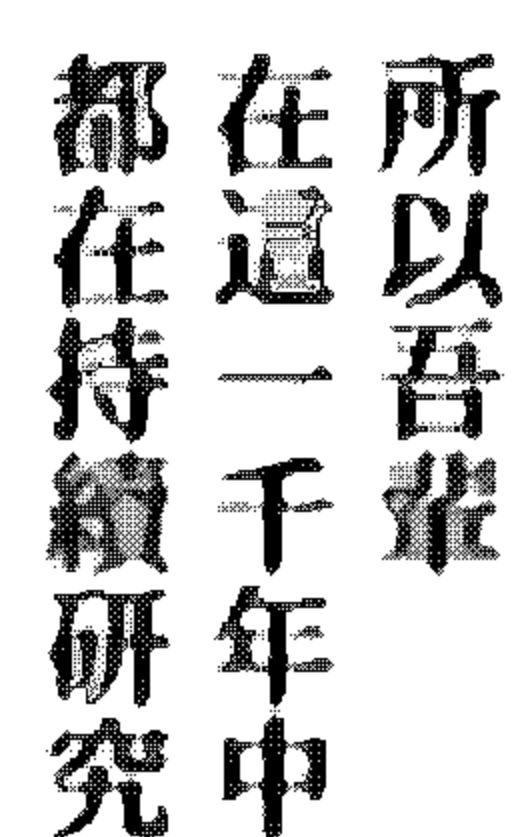 所以吾輩
在這一千年中
都在持續研究